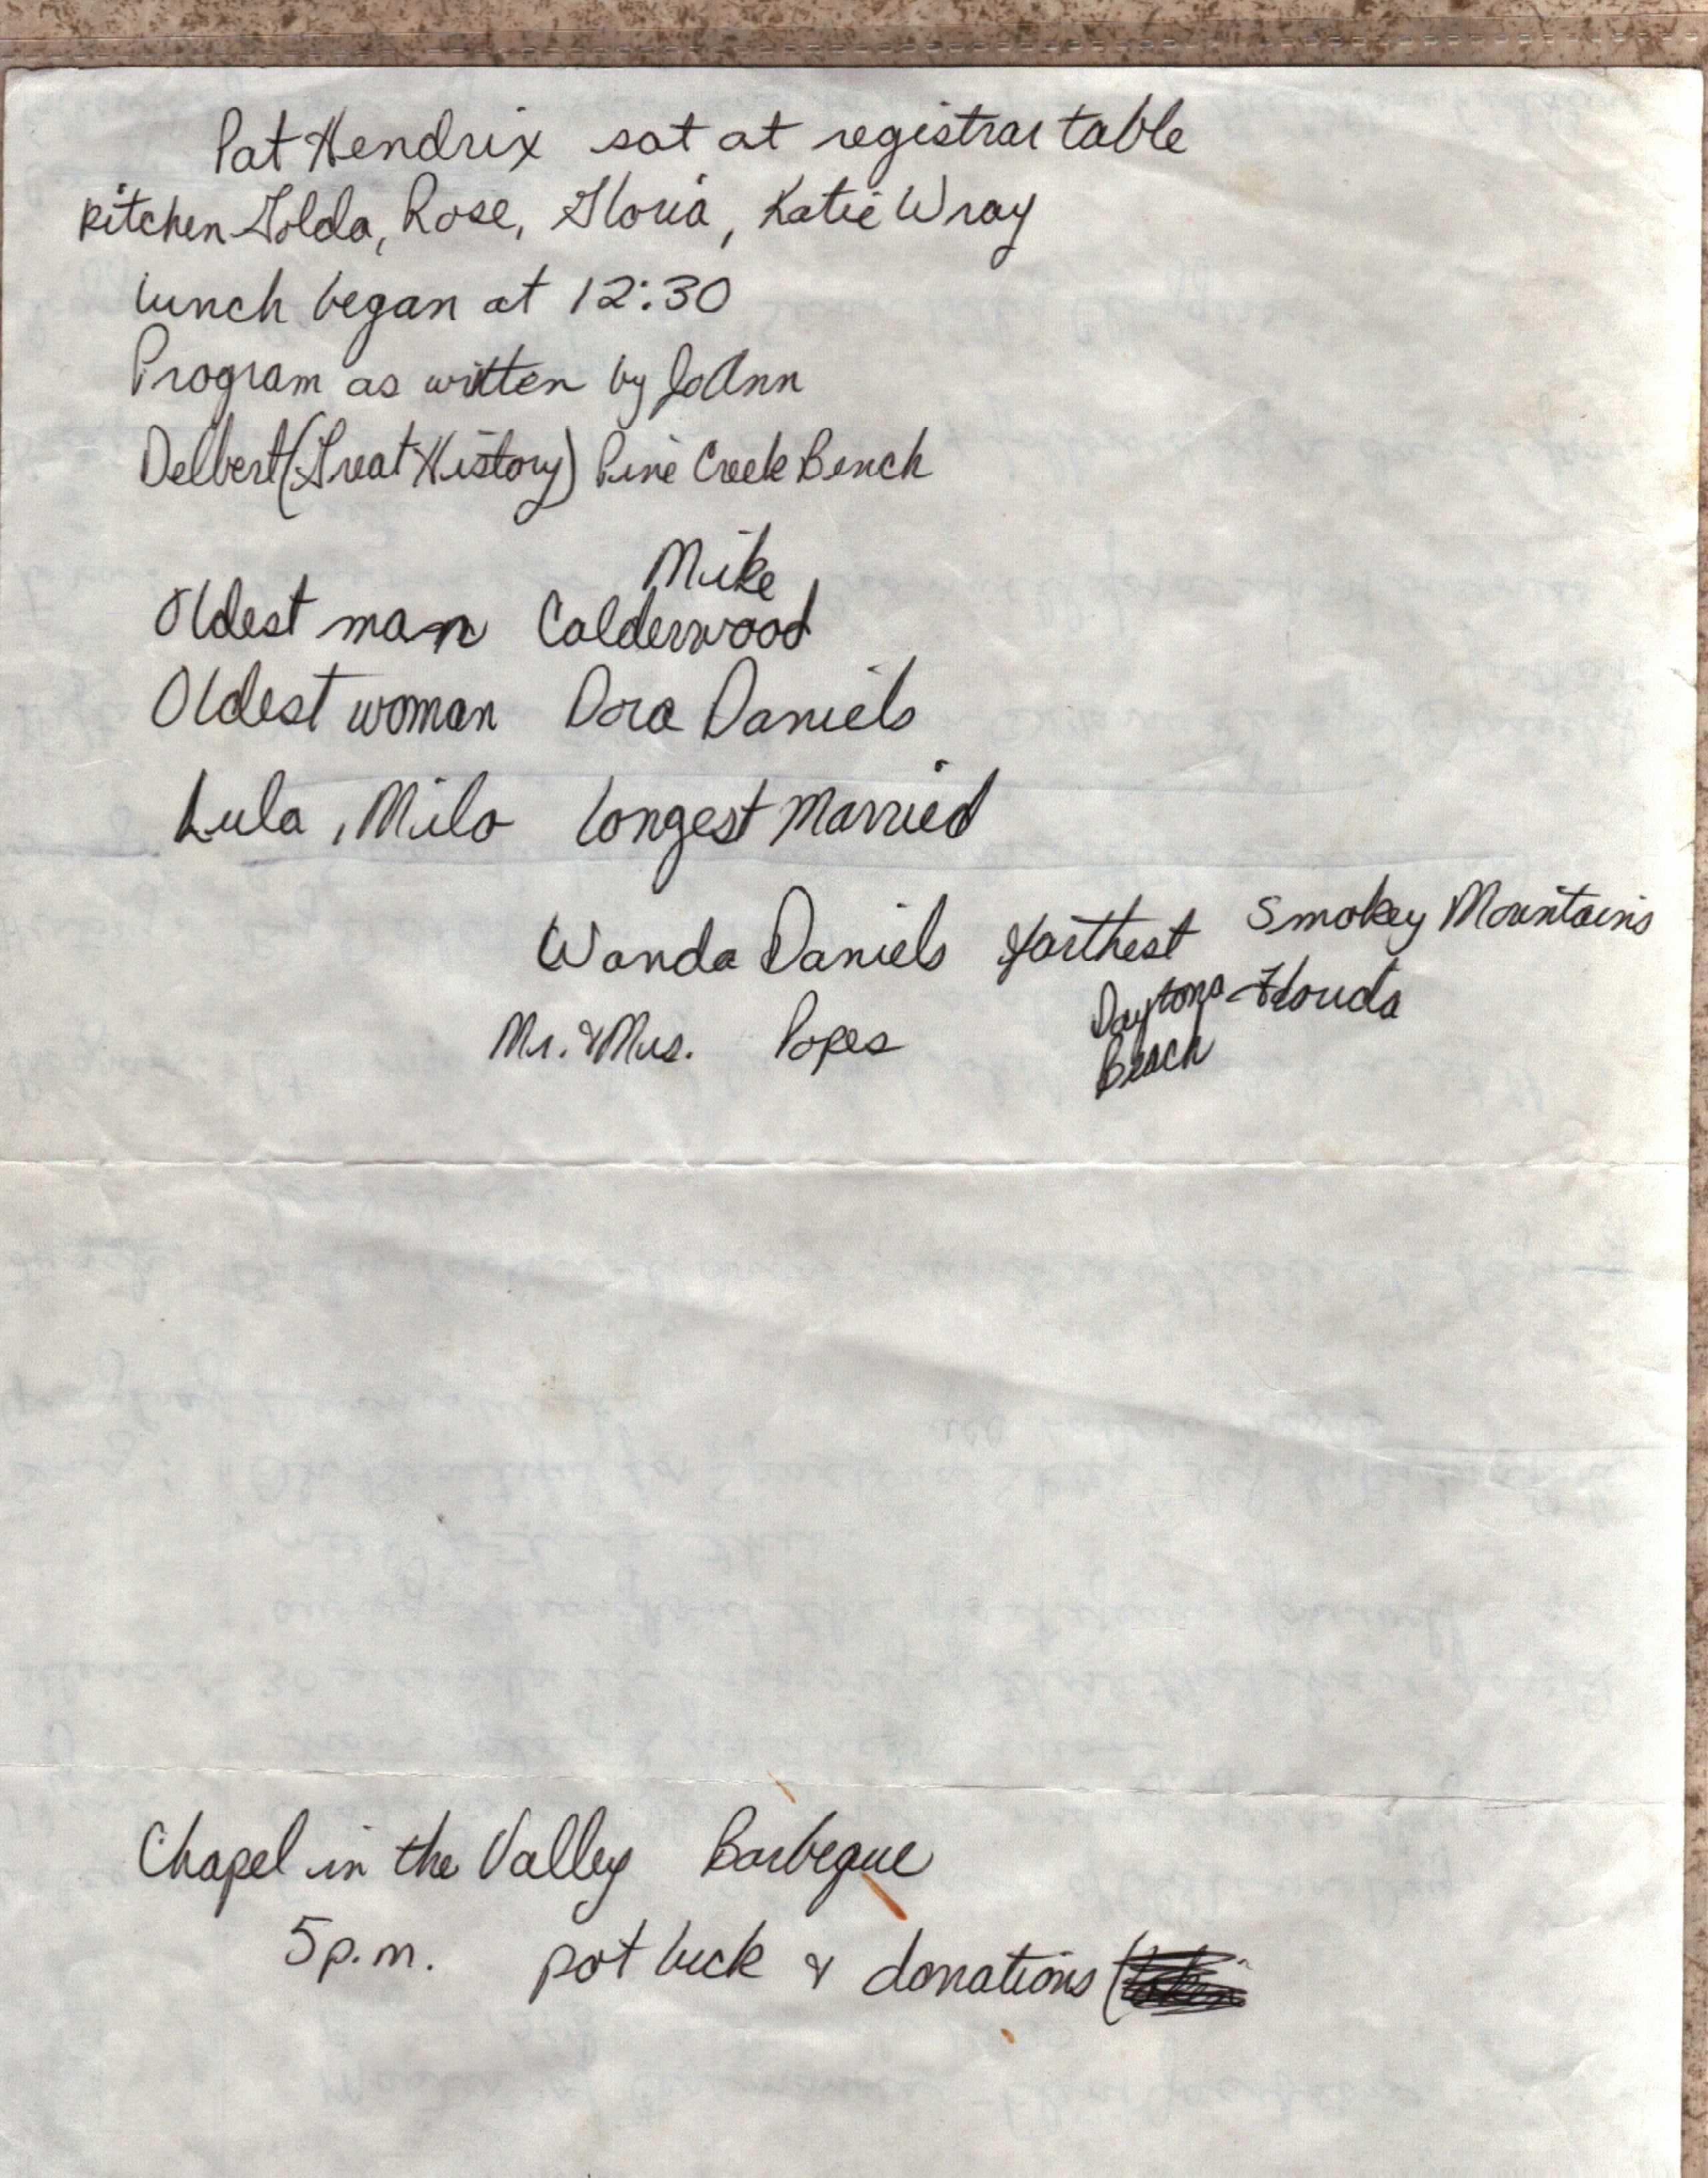 Pat Hendrix sat at registrar table
Kitchen Golda, Rose, Gloria, Katie Wray
Lunch began at 12:30
Program as written by JoAnn
Delbert (Great History) Pine Creek Bench
Mike
Oldest man Calderwood
Oldest woman Dora Daniels
Lula, Milo Longest Married
Wanda Daniels Farthest Smokey Mountains
Mr. & Mrs. Popes Daytona Florida
Beach
Chapel in the Valley Barbeque
5 p.m. pot luck & donations